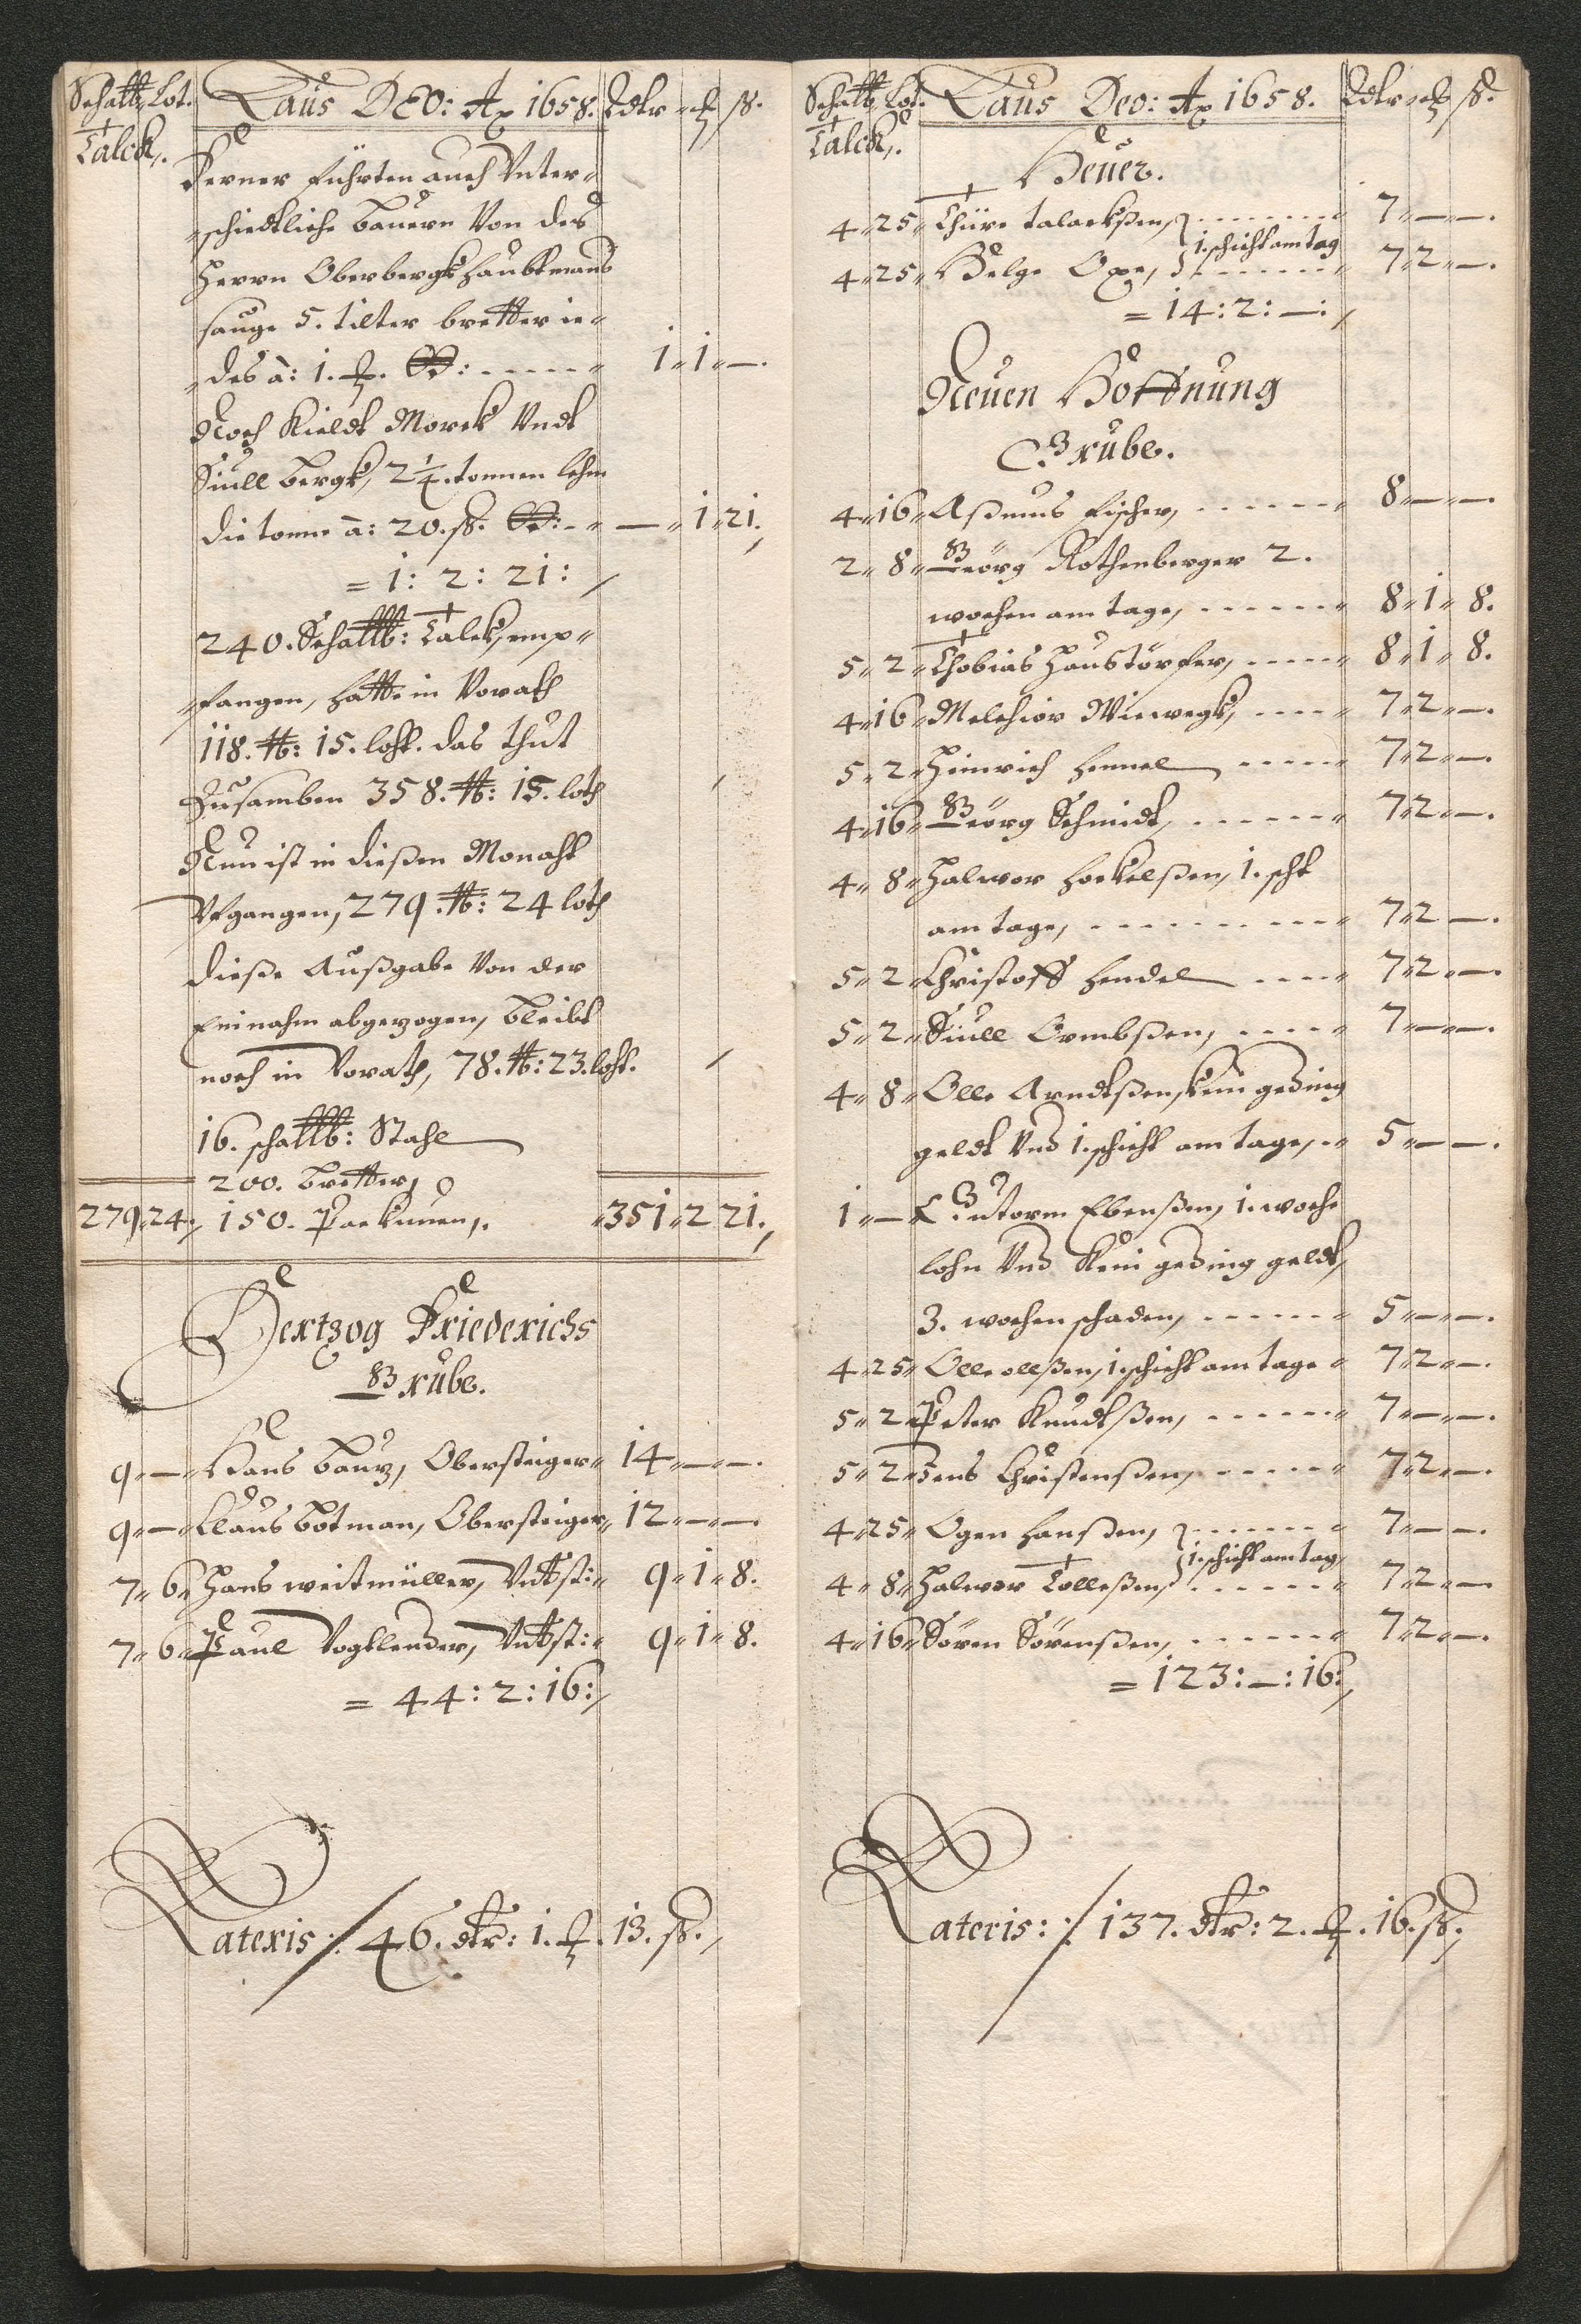 Schaltt. Lot.
Talck.
Laus DEO: Ao 1658. Rdlr ort ß.
Ferner führten auch Unter-
schiedtliche bauern Von des
Herrn Oberbergkhaubtmans
sauge 5. tilter bretter ie-
des à: 1. ort. " 1 " 1 " — .
Noch Kieldt Morck Undt
Siull bergk, 2¼. tonnen lehm
die tonne à: 20. ß. " — " 1 " 21.
= 1: 2: 21:
240. Schallb: Talck, emp-
fangen, hatte in Vorath
118. lb: 15. loht. das thut
Zusamben 358. lb: 15. loth
Nun ist in dießen Monaht
Ufgangen, 279. lb: 24 loth
dieße Außgabe Von der
Einnahm abgezogen, bleibt
noch in Vorath, 78. lb: 23. loht.
16. schallb: Stahl
200. bretter,
279 " 24. 150. Packnuen,. " 351 " 2 21.
Hertzog Friederichs
Grube.
9 " — " Hans bauz, Obersteiger " 14 " — " — .
9 " — " Claus botman, Obersteiger " 12 " — " — .
7 " 6 " Hans weitmüller, Untst: " 9 " 1 " 8.
7 " 6 " Paul Vogtlender, Untst: " 9 " 1 " 8.
= 44: 2: 16:
Lateris: 46. dlr: 1. ort. 13. ß.
Schaltt. Lot.
Talck.
Laus Deo: Ao 1658. Rdlr ort ß.
Heuer.
4 " 25 " Thüre talackßen, " 7 " — " — .
1. schicht am tag
4 " 25 " Helge Oxe, " 7 " 2 " — .
= 14: 2: — :
Neuen Hoffnung
Grube.
4 " 16 " Aßmus fischer, " 8 " — " — .
2 " 8 " Geörg Rothenberger 2.
wochen am tage, " 8 " 1 " 8.
5 " 2 " Thobias Haustörfer, " 8 " 1 " 8.
4 " 16 " Melchior Wiewegk, " 7 " 2 " — .
5 " 2 " Heinrich Hennel " 7 " 2 " — .
4 " 16 " Geörg Schmidt, " 7 " 2 " — .
4 " 8 " Halwor Hoekelßen, 1. scht
am tage, " 7 " 2 — .
5 " 2 " Christoff Hendel " 7 " 2 " — .
5 " 2 " Siull Ormbßen, " 7 " — " — .
4 " 8 " Olle Arndtßen, kein geding
geldt Und 1. schicht am tage, " 5 " — — .
1 " — Guttorm Ebenßen, 1. woche
lohn Und Kein geding geldt,
3. wochen schaden, " 5 " — " — .
4 " 25 " Olle ollßen, 1. schicht am tage " 7 " 2 " — .
5 " 2 " Peter Knudtßen, " 7 " — " — .
5 " 2 " Jens Christenßen, " 7 " 2 " — .
4 " 25 " Ogen Hanßen, " 7 " — — .
1. schicht am tag
4 " 8 " Halwor Tolleßen, " 7 " 2 " —
4 " 16 " Sören Sörenßen, " 7 " 2 " — .
= 123: — : 16:
Lateris: 137. dlr: 2. ort. 16. ß.